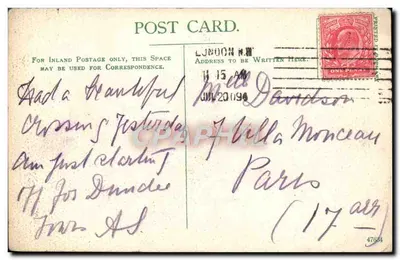 POST CARD.
FOR INLAND POSTAGE ONLY, THIS SPACE
MAY BE USED FOR CORRESPONDENCE.
ADDRESS TO BE WRITTEN HERE.
LONDON N.W
11 15 AM
JUL 20 09
ONE PENNY
Had a beautiful
crossing yesterday
am just starting
off for Dundee
Yours AS.
Mlle Davidson
7 Villa Monceau
Paris
(17 arr)
47694